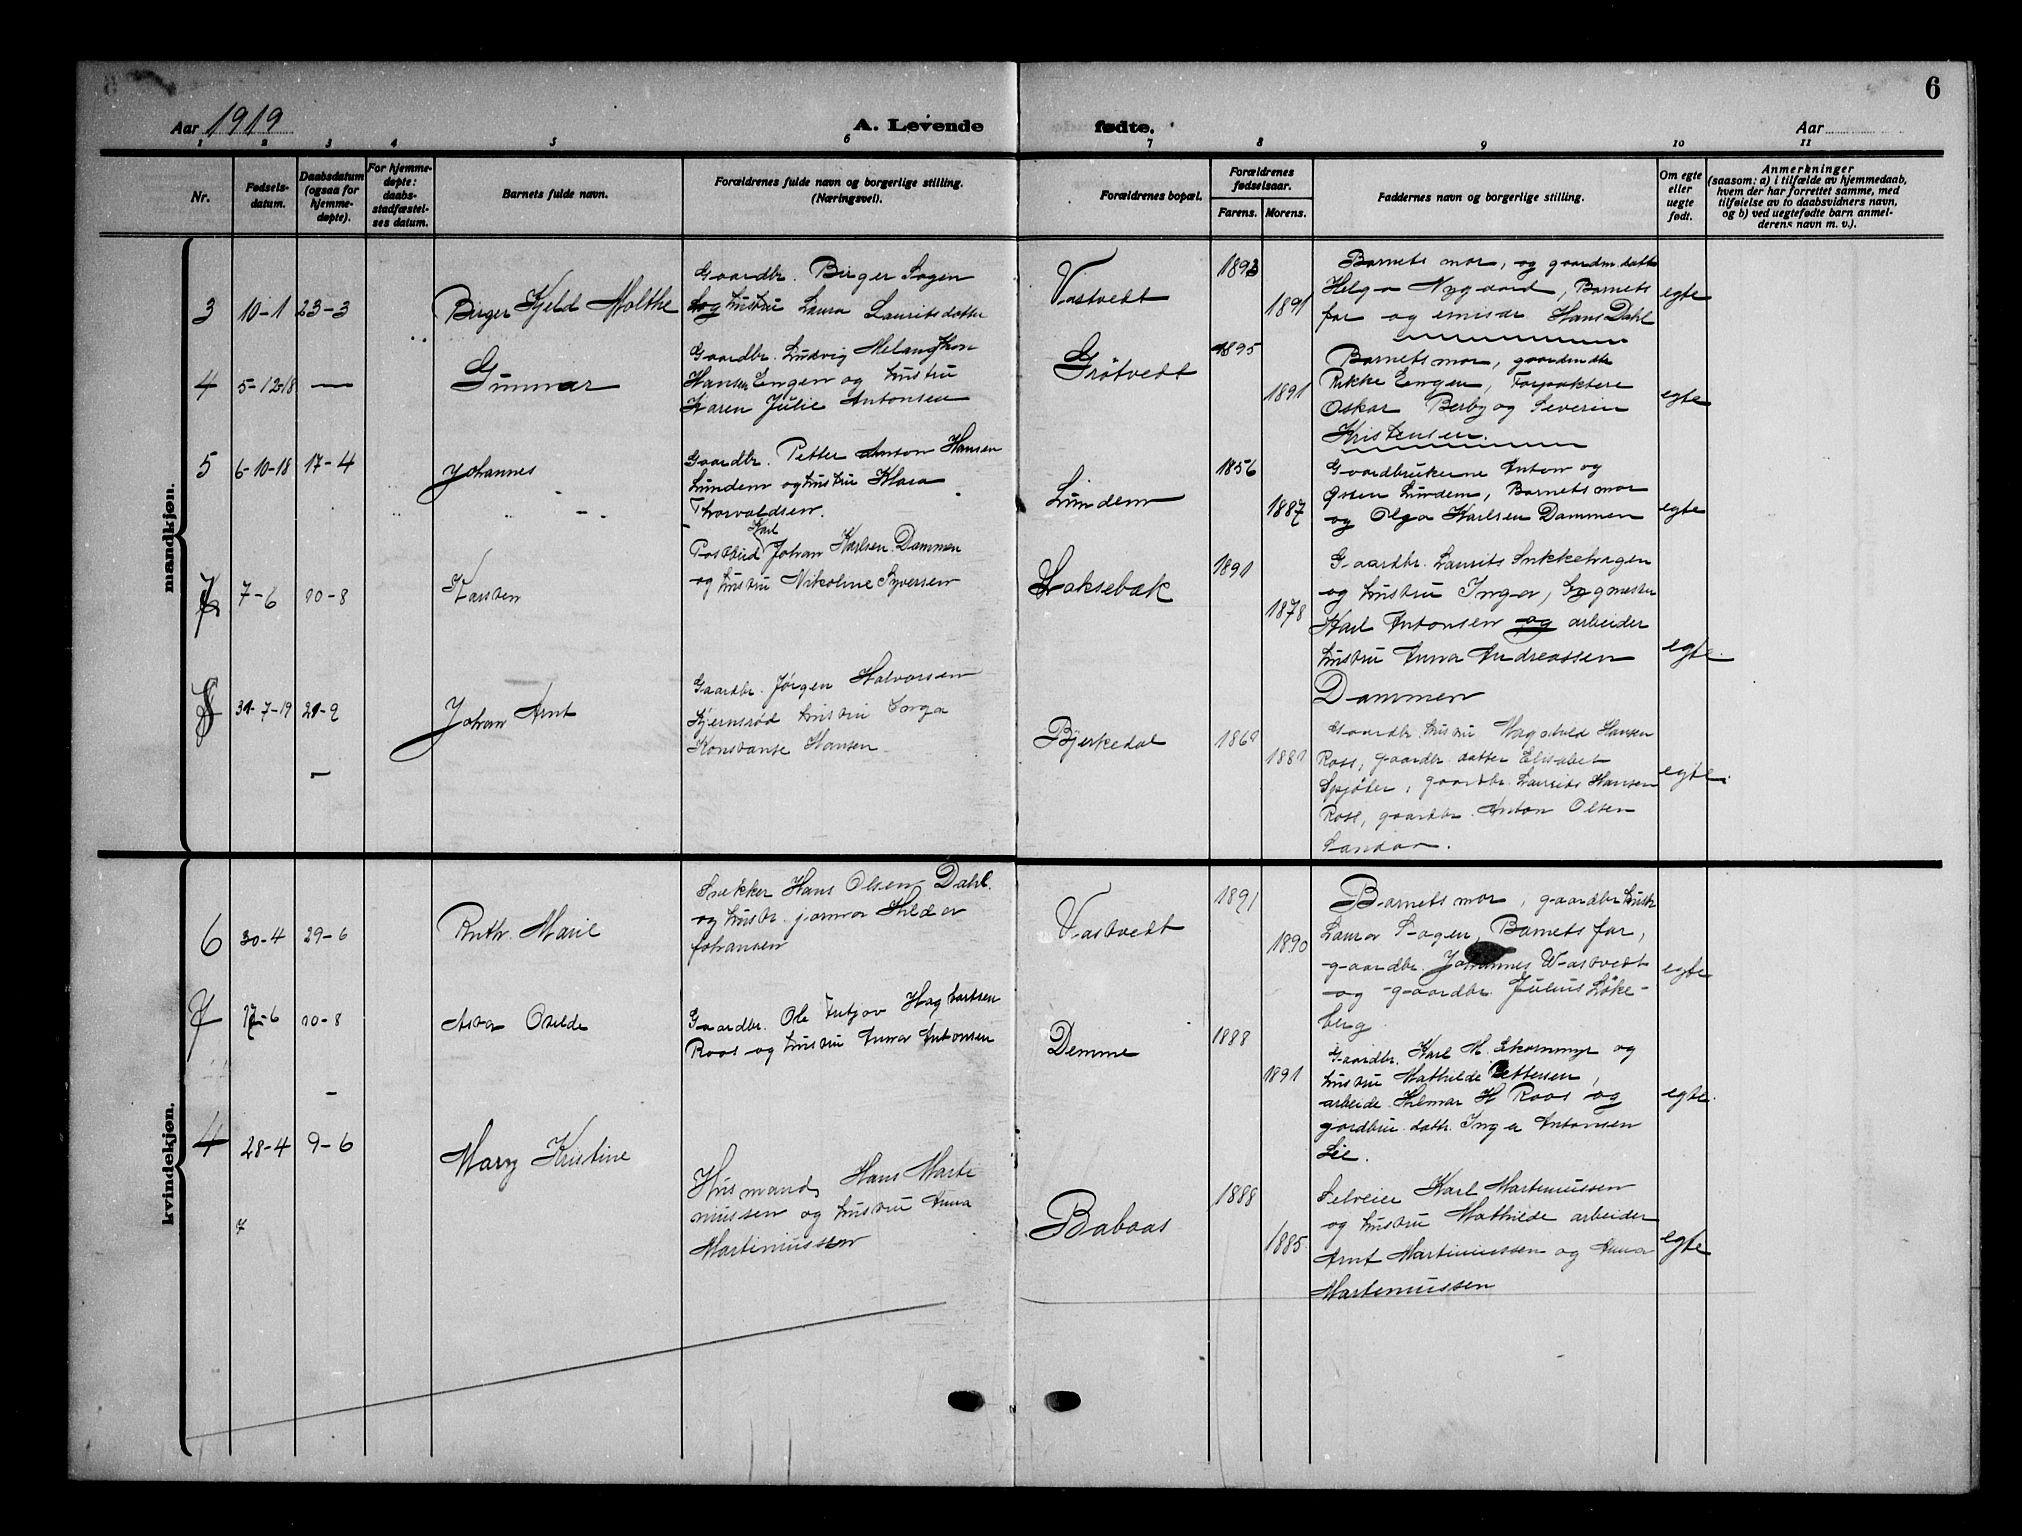 6
Aar 1919
A. Levende fødte.
Aar
1 2 3 4 5 6 7 8 9 10 11
Nr.
Fødsels-
datum.
Daabsdatum
(ogsaa for
hjemme-
døpte).
For hjemme-
døpte:
daabs-
stadfæstel-
ses datum.
Barnets fulde navn.
Forældrenes fulde navn og borgerlige stilling.
(Næringsvei).
Forældrenes bopæl.
Forældrenes
fødselsaar.
Farens. Morens.
Faddernes navn og borgerlige stilling.
Om egte
eller
uegte
født.
Anmerkninger
(saasom: a) i tilfælde av hjemmedaab,
hvem der har forrettet samme, med
tilføielse av to daabsvidners navn,
og b) ved uegtefødte barn anmel-
derens navn m. v.).
mandkjøn.
3 10-1 23-3
Birger Kjeld Molthe
Gaardbr. Birger Sogen
og hustru Laura Lauritsdatter
Vastvedt
1893
1891
Barnets mor, og gaardm. datt
Helga Nygaard, Barnets
far og emisær Hans Dahl
egte
4 5-12-18 —
Gunnar
Gaardbr. Ludvig Melangthon
Hansen Engen og hustru
Karen Julie Antonsen
Grötvedt
1895
1891
Barnets mor, gaardm dtr
Rikke Engen, Forpaktere
Oskar Berby og Severin
Kristensen.
egte
5 6-10-18 17-4
Johannes
Gaardbr. Petter Anton Hansen
Lundem og hustru Klara
Thorvaldsen.
Lundem
1856
1887
Gaardbrukerne Anton og
Lundem, Barnets mor
og Olga Karlsen Dammen
egte
7-6 10-8
Karsten
Karl
Postbud Johan Karlsen Dammen
og hustru Nikoline Syversen
Laksebæk
1891
1878
Gaardbr. Laurits
og hustru Inga,
Karl Antonsen og arbeider
hustru Anna Andreassen
Dammen
egte.
8 31-7-19 21-9
Johan Arnt
Gaardbr. Jørgen Halvorsen
Kjernsrød hustru Inga
Konstanse Hansen
—
Bjerkedal
1869
1881
Gaardbr. hustru Magnhild Hansen
Ross, gaardbr datter Elisabet
Spjøter, gaardbr. Laurits Hansen
Ross, gaardbr. Anton Olsen
Sandaa.
egte.
kvindekjøn.
6 30-4 29-6
Ruth Marie
Snekker Hans Olsen Dahl.
og hustr. Hilda
Johansen
Vastvedt
1891
1890
Barnets mor, gaardbr hustr
Laura Sogen, Barnets far,
gaardbr. Johannes Wastvedt
og gaardbr. Julius Løke-
berg
egte
7 17-6 10-8
Asta Oxilde
Gaardbr. Ole Fritjov Hagbartsen
Roos og hustru Anna Antonsen
—
Demme
1888
1891
Gaardbr. Karl M. Skommyr og
hustru Mathilde Pettersen,
arbeide. Hilmar H Roos og
gardbru. datr. Inga Antonsen
Lie.
egte.
4 28-4 9-6
Mary Kristine
Husmand, Hans Marti
nussen og hustru Anna
Martinussen
7
Babaas
1888
1885
Selveier Karl Martinussen
og hustru Mathilde arbeider
Arnt Martinussen og Anna
Martinussen
egte